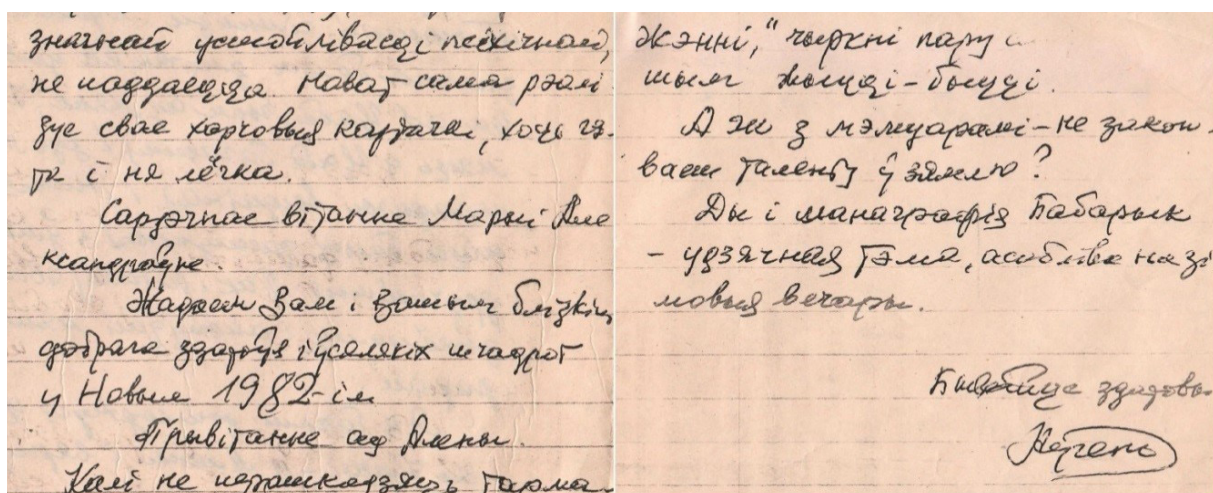 значнай устойлівасці псіхічнай,
не паддаецца. Нават сама рэалі
зуе свае харчовыя карткі, хоць гэ-
та і ня лёгка.
Сардэчнае вітанне Марыі Але
ксандраўне.
Жадаем Вам і вашым блізкім
добрага здароўя і ўсялякіх шчадрот
у Новым 1982-ім
Прывітанне ад Алены.
Калі не перашкаджаюць гарма-
жэнні, чыркні пару
шым жыцці-быцці.
А як з мэмуарамі – не закоп-
ваеш таленту ў зямлю?
Ды і манаграфія Бабарык
– удзячная тэма, асобліва на зі
мовыя вечары.
Бывайце здаровы